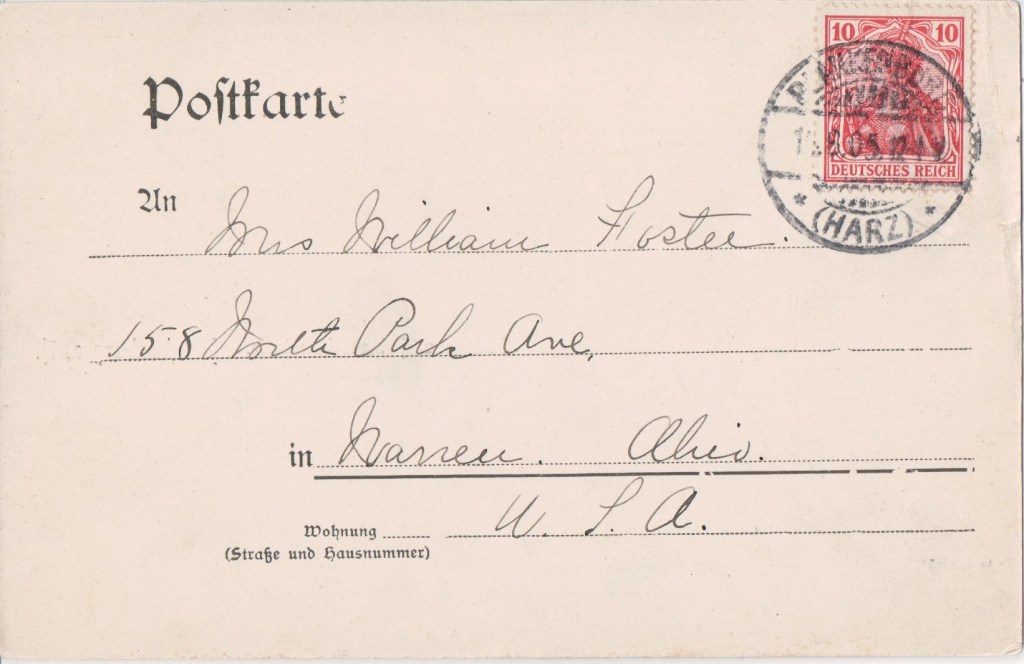 10 10
DEUTSCHES REICH
BLANKENBURG
(HARZ)
Postkarte
An
Mrs William Foster.
158 North Park Ave,
in Warren. Ohio.
U. S. A.
Wohnung
(Straße und Hausnummer)